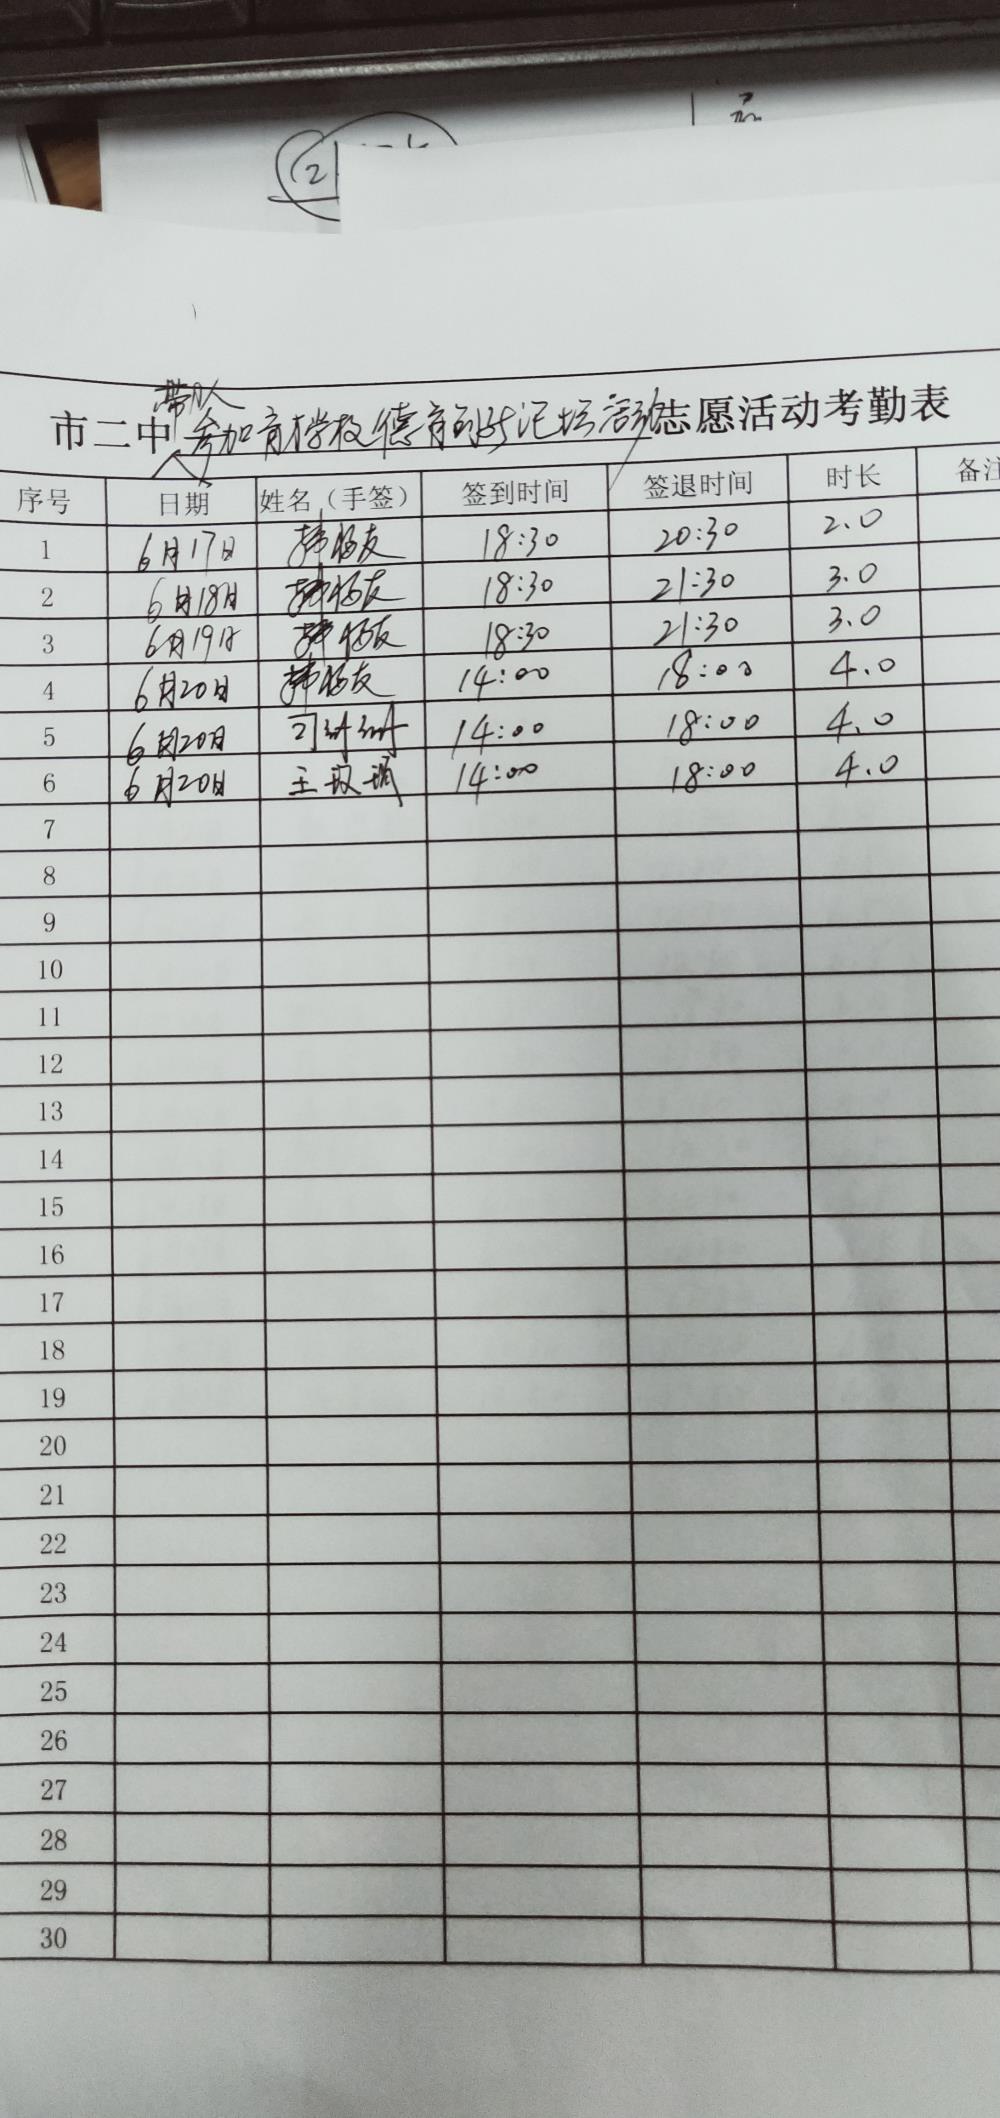 2
带队
市二中参加育才学校德育 活动志愿活动考勤表
序号 日期 姓名(手签) 签到时间 签退时间 时长 备注
1 6月17日 韩 友 18:30 20:30 2.0
2 6月18日 韩 友 18:30 21:30 3.0
3 6月19日 韩 友 18:30 21:30 3.0
4 6月20日 韩 友 14:00 18:00 4.0
5 6月20日 14:00 18:00 4.0
6 6月20日 王 14:00 18:00 4.0
7
8
9
10
11
12
13
14
15
16
17
18
19
20
21
22
23
24
25
26
27
28
29
30